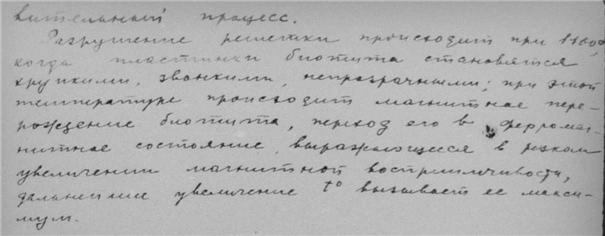 вительный процесс.
Разрушение решетки происходит при 1100°
когда пластинки биотита становятся
хрупкими, звонкими, непрозрачными; при этой
температуре происходит магнитное пере-
рождение биотита, переход его в ферромаг-
нитное состояние, выражающееся в резком
увеличении магнитной восприимчивости,
дальнейшие увеличение t° вызывает ее макси-
мум.